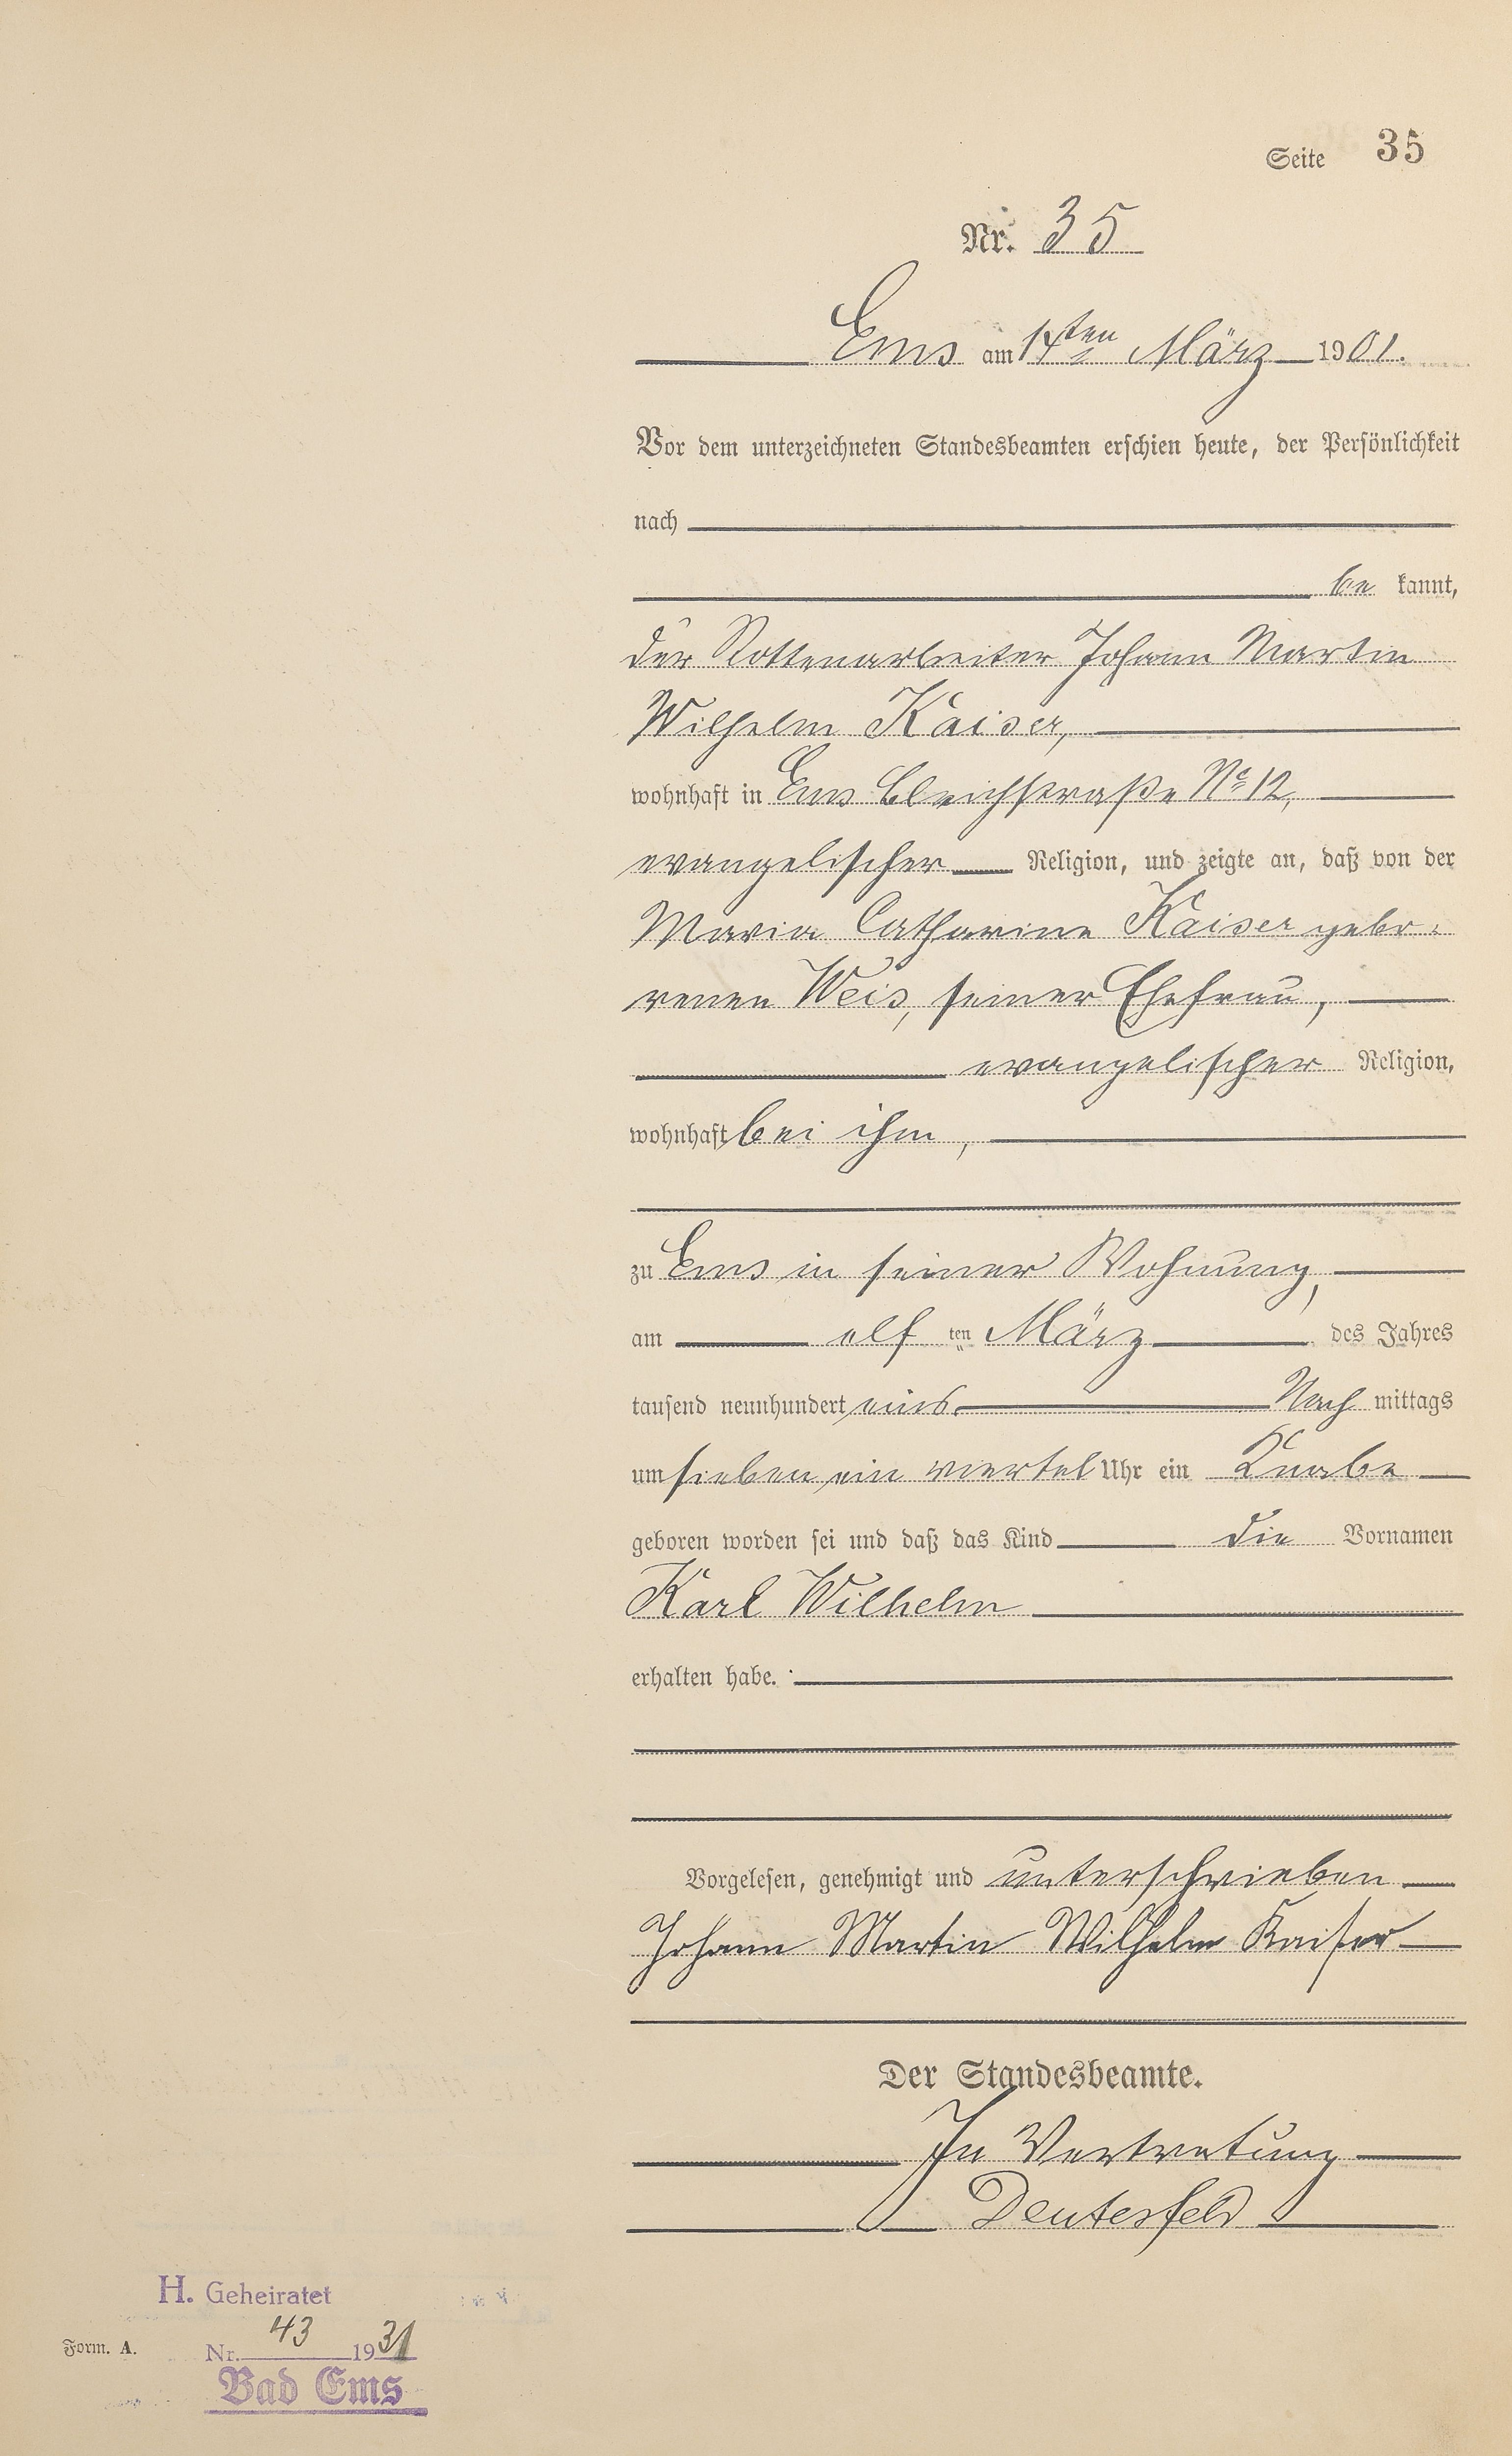 Seite 35
Nr. 35
Ems am 14ten März 1901.
Vor dem unterzeichneten Standesbeamten erschien heute, der Persönlichkeit
nach
be kannt,
der Rottenarbeiter Johann Martin
Wilhelm Kaiser,
wohnhaft in Ems Bleichstraße No 12,
evangelischer Religion, und zeigte an, daß von der
Maria Catharine Kaiser gebo-
renen Weis, seiner Ehefrau,
evangelischer Religion,
wohnhaft bei ihm,
zu Ems in seiner Wohnung,
am elf ten März des Jahres
tausend neunhundert eins Nach mittags
um sieben ein viertel Uhr ein Knabe
geboren worden sei und daß das Kind die Vornamen
Karl Wilhelm
erhalten habe.
Vorgelesen, genehmigt und unterschrieben
Johann Martin Wilhelm Kaiser
Der Standesbeamte.
In Vertretung
Deutesfeld
H. Geheiratet
Form. A. Nr. 43 1931
Bad Ems